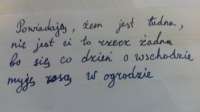 Powiadają, żem jest ładna,
nie jest ci to rzecz żadna
bo się co dzień o wschodzie
myję rosą w ogrodzie